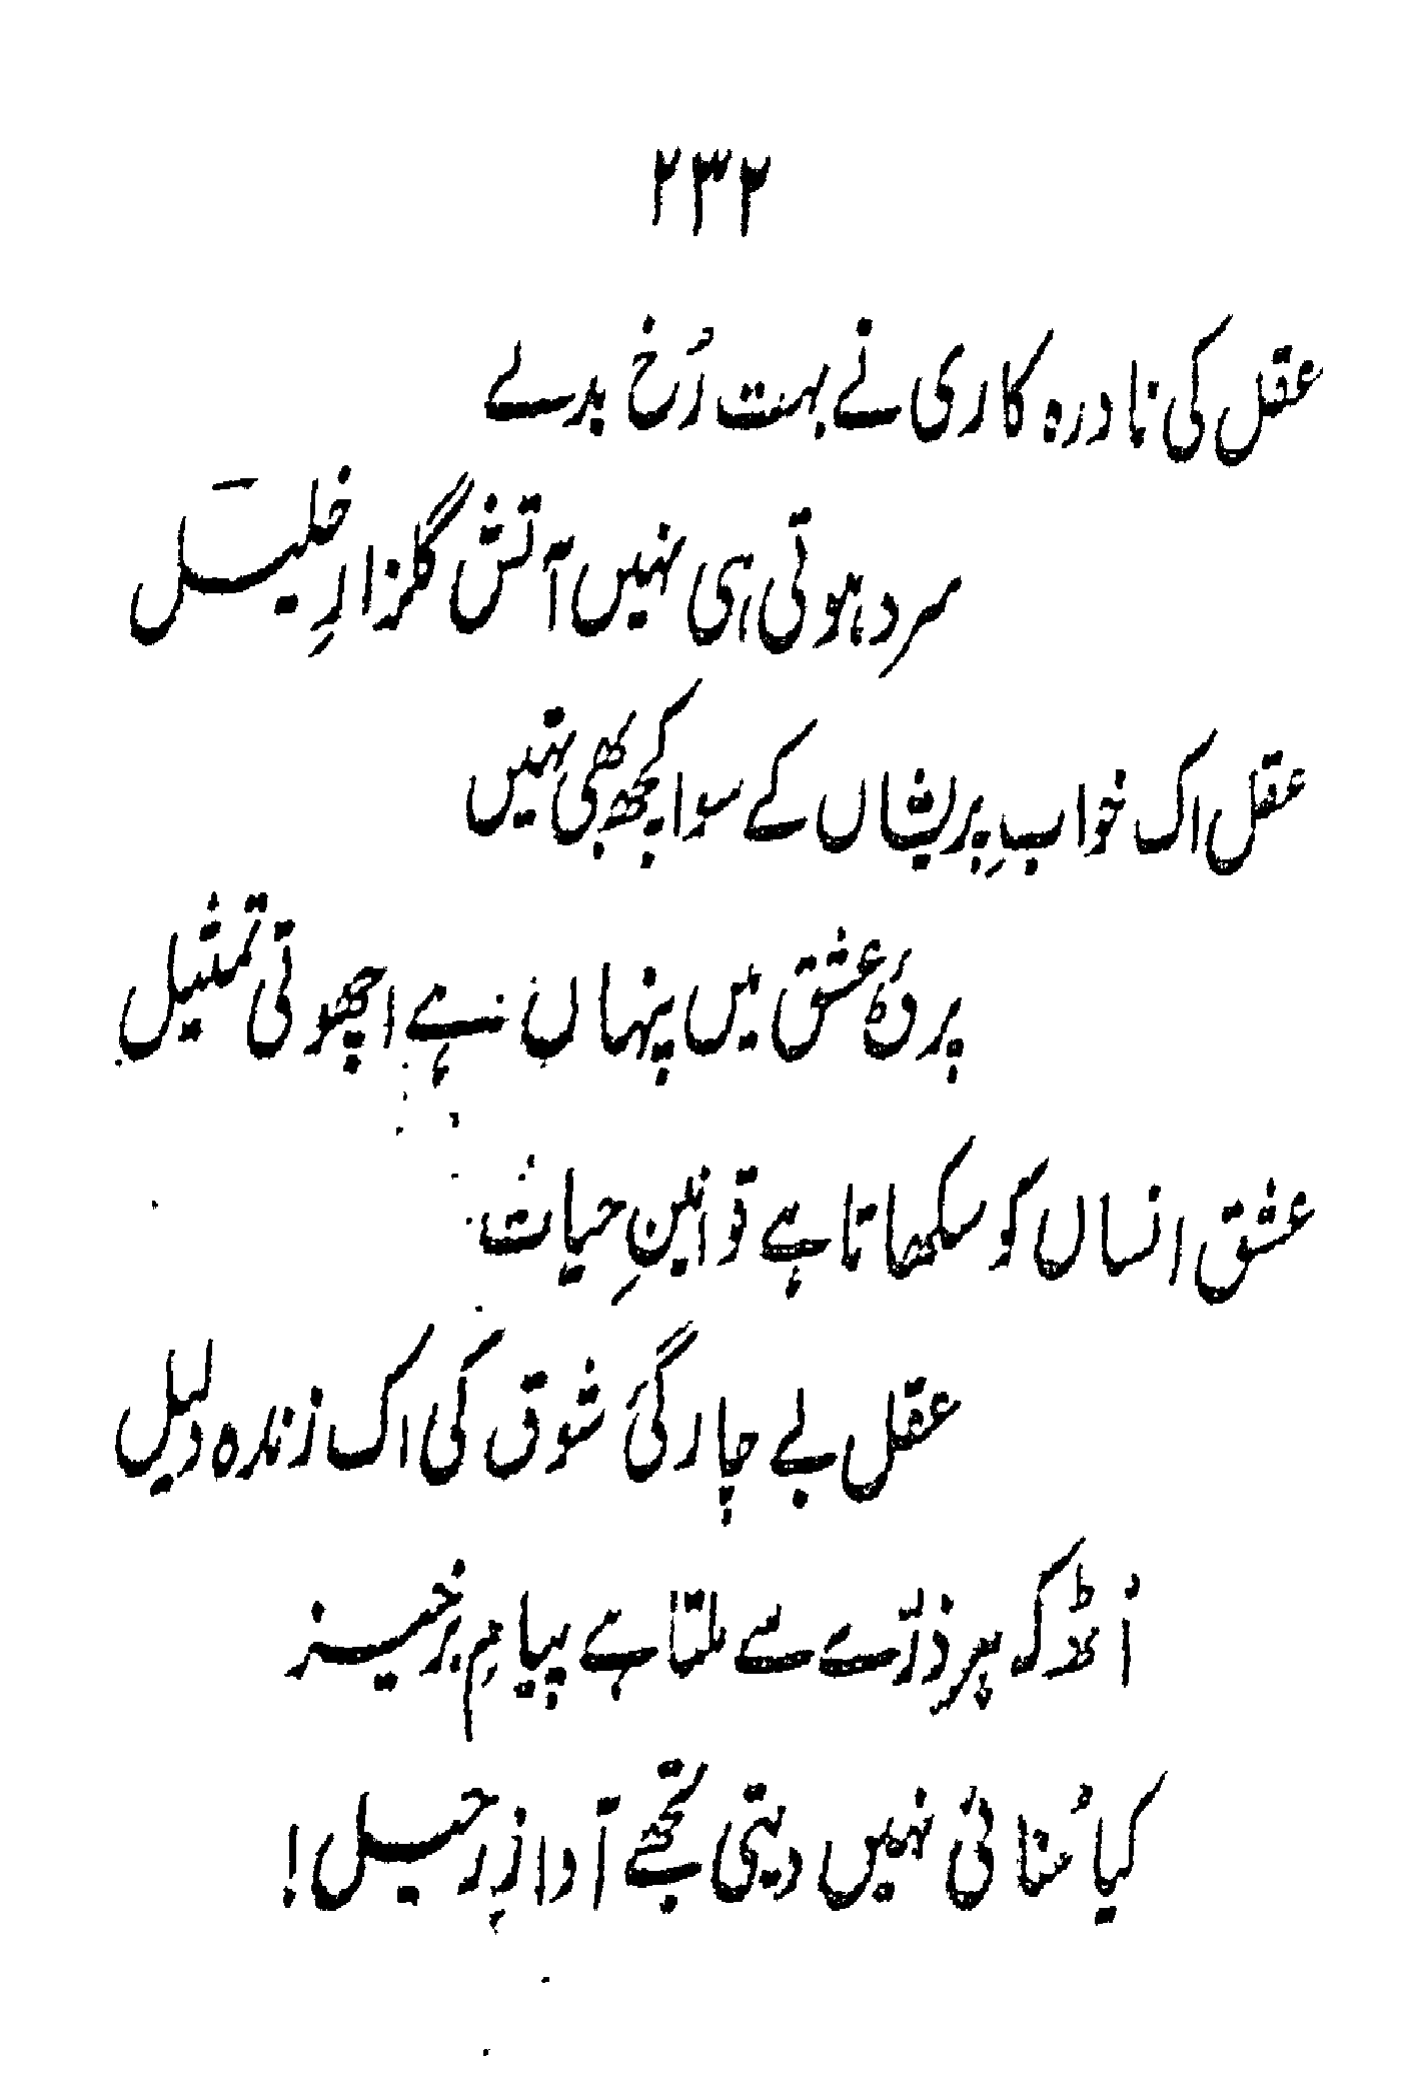 ۲۳۲
عقل کی نادرہ کاری نے بہت رُخ بدلے
سرد ہوتی ہی نہیں آتش گلزارِ خلیل
عقل اک خوابِ پریشاں کے سوا کچھ بھی نہیں
پردۂ عشق میں پنہاں ہے اچھوتی تمثیل
عشق انساں کو سکھاتا ہے قوانینِ حیات
عقل بے چارگیٔ شوق کی اک زندہ دلیل
اُٹھ کہ ہر ذرّے سے ملتا ہے پیامِ برخیز
کیا سُنائی نہیں دیتی تجھے آوازِ رحیل!